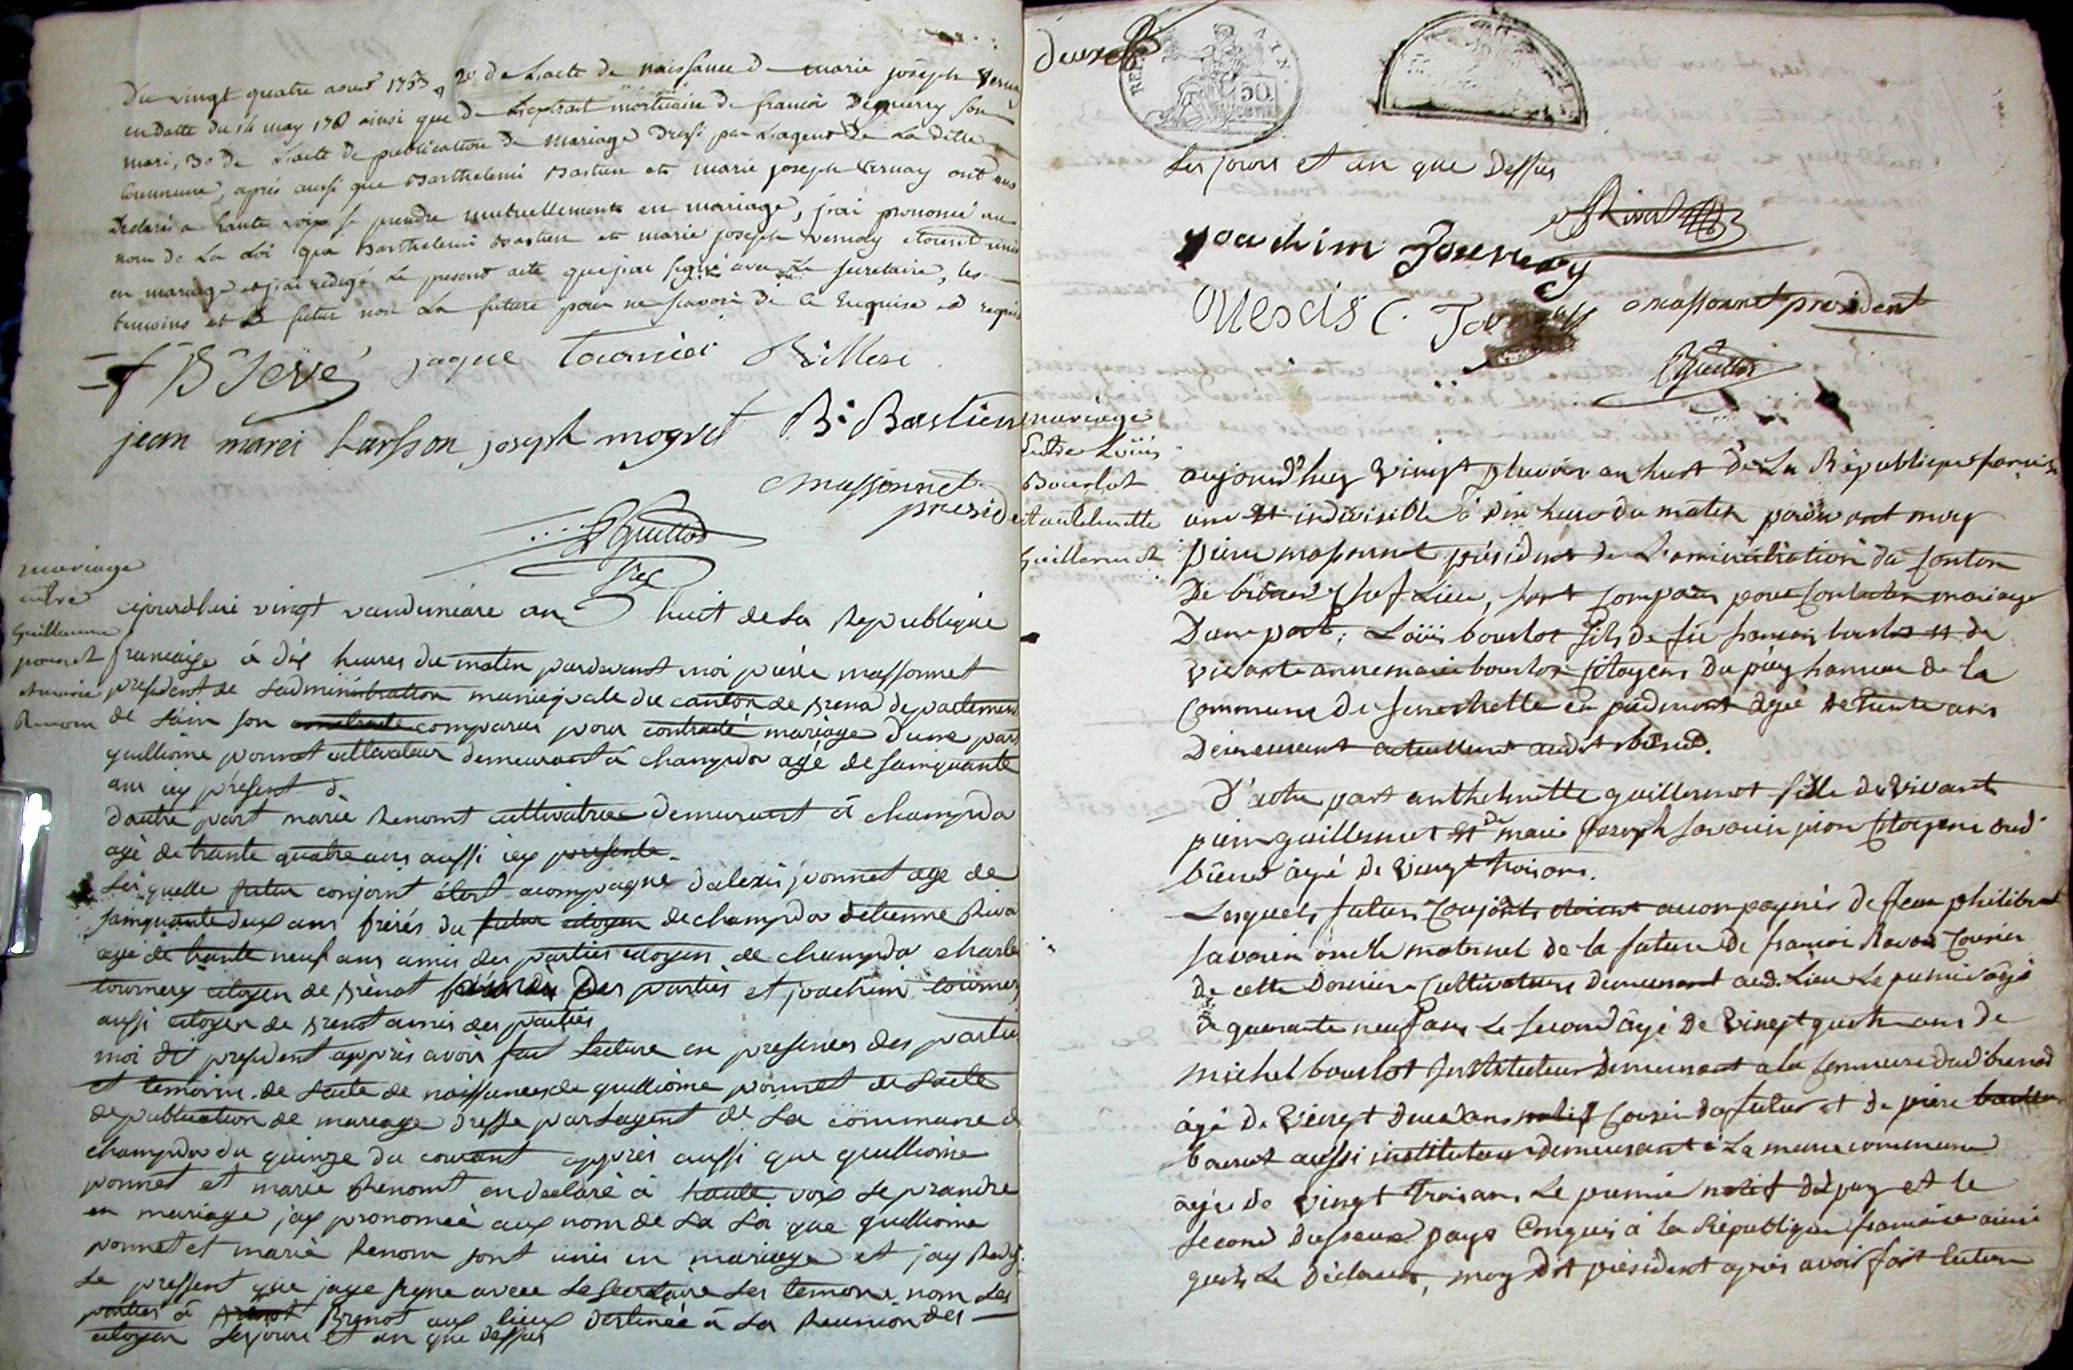 Du vingt quatre aoust 1753, 2o de L'acte de naissance de marie joseph Vernay
en datte du 14 may 176 ainsi que de L'extrait mortuaire de francois Dequerry son
mari, 3o de L'acte de publication de mariage Dressé par L'agent de La ditte
Commune, aprés aussi que Barthelemi Bastien et marie joseph Vernay ont eus
Declaré a haute voix se prendre mutuellement en mariage, j'ai prononcé au
nom de La Loi que Barthelemi Bastien et marie joseph Vernay etoient unis
en mariage et j'ai redigé Le present acte que j'ai signé avec Le secretaire, les
temoins et le futur non La future pour ne scavoir de ce Enquise et requise
jaque tournier
jean marei joseph mogret B. Bastien
massonnet
preside
Guillot
Sec
mariage
entre
Guillaume
ponnet
et marie
Renom
ojourdhui vingt vandemiare an huit de La Republique
francaise à dix heures du matin pardevant moi pierre massonnet
president de Ladministration municipale du canton de Brenod departement
de Lain son comparus pour contracté mariage d'une part
guilliome ponnet cultivateur demeurant à champdor agé de sainquante
ans icy présent d.
dautre part marie Renomt cultivatrice demeurant à champdor
agé de trante quatre ans aussi icy presente.
Les quelle futur conjoint étoit acompagné d'alexis ponnet age de
sainquante deux ans frérés du futur citoyen de champdor detienne Riva
agé de trante neuf ans amis des parties citoyen de champdor charle
tournery citoyen de Brénot des parties et joachim tournery
aussi citoyen de Brenot amis des parties
moi dit president apprés avoir fait Lecture en presences des partie
et temoins de Lacte de naissances de guilliome ponnet de Lacte
de publication de mariage dresse par Lagent de La commune de
champdor du quinze du courant apprés aussi que guilliome
ponnet et marie Renomt en declaré à haute voix se prandre
en mariage jay prononcé aux nom de La Loi que guilliome
ponnet et marie Renom sont unis en mariage et jay Redige
Le pressent que jaye signe avec Le Secretaire Les temoins nom Les
parties à Brenot aux lieux destinée à La Reunion des
citoyen Les jours et an que dessus
deuxe
REP
50
cent
Les jours et an que Dessus
E Rivat
joachim Tournery
Alexcis
massonnet president
Guillot
mariage
Entre Loüis
Bourlot
et anthelmette
Guillermet
aujourd'huy Vingt pluviose an huit de La République francaise
une et indivisible à dix heure du matin pardevant moy
pierre massonnet président de L'aministration du Conton
De brenod Chef Lieu, sont Comparus pour Contracter mariage
D'une part, Loüis bourlot fils de fü francois bourlot et de
vivante anne marie bourlot Citoyens du püy hameau de la
Commune de fenestrelle en piedmont âgé de trente ans
Demeurant actuellement audit brénod.
D'autre part anthelmette guillermet fille de Vivant
pierre guillermet et de marie Joseph Savarin Citoyens dud.
brenod âgé de Vingt trois ans.
Lesquels futurs Conjoints étoient accompagnés de Jean philibert
Savarin oncle maternel de la future de francois Ravot Cousin
de cette Derniere Cultivateurs Demeurant aud. Lieu Le premier âgé
de quarante neuf ans Le second âgé de Vingt quatre ans de
michel bourlot Instituteur Demeurant a la Commune dud brenod
âgé de Vingt deux ans Cousin du futur et de pierre
bourcet aussi instituteur demeurant à La meme commune
âgé de Vingt trois ans Le premier natif dü puy et le
second pays Conquis à la République francaise ainsi
quils Le Déclarent, moy Dit président après avoir fait lecture